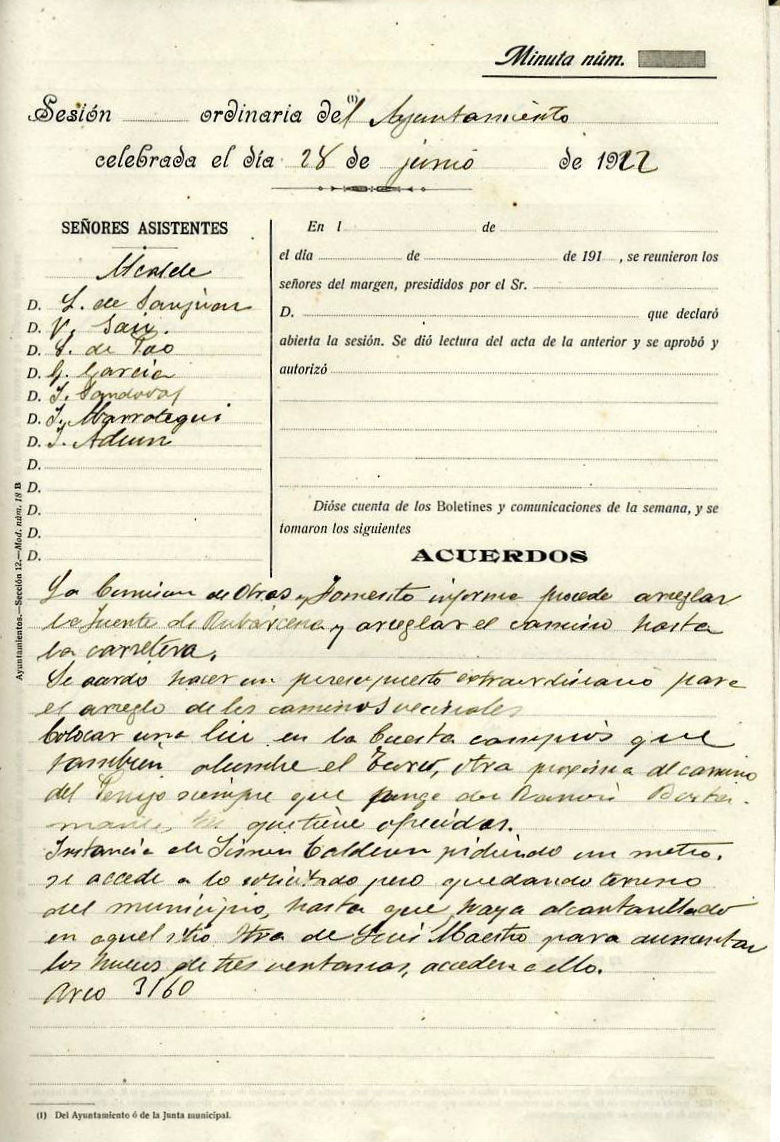 Minuta núm.
Sesión ordinaria del (1) Ayuntamiento
celebrada el día 28 de junio de 1922
SEÑORES ASISTENTES
Alcalde
D. L. de Sanjuan
D. V. Sair.
D. S. de Pao
D. G. García
D. J. Sandoval
D. J. Marrotegui
D. J. Aduna
D.
D.
D.
D.
D.
En l de
el día de de 191 , se reunieron los
señores del margen, presididos por el Sr.
D. que declaró
abierta la sesión. Se dió lectura del acta de la anterior y se aprobó y
autorizó
Dióse cuenta de los Boletines y comunicaciones de la semana, y se
tomaron los siguientes
ACUERDOS
La Comision de Obras y Fomento informa procede arreglar
la fuente de Rubárcena y arreglar el camino hasta
la carretera.
Se acordó hacer un presupuesto extraordinario para
el arreglo de los caminos vecinales
Colocar una luz en la Cuesta campiós que
tambien alumbre el , otra proxima al camino
del siempre que ponga don Ramón
que tiene ofrecidas.
Instancia de Simon Calderon pidiendo un metro.
se accede a lo solicitado pero quedando terreno
del municipio, hasta que haya alcantarillado
en aquel sitio Otra de Luis Maestro para aumentar
los huecos de tres ventanas, acceden a ello.
Arco 3160
Ayuntamientos.—Sección 12.—Mod. núm. 18 B
(1) Del Ayuntamiento ó de la Junta municipal.